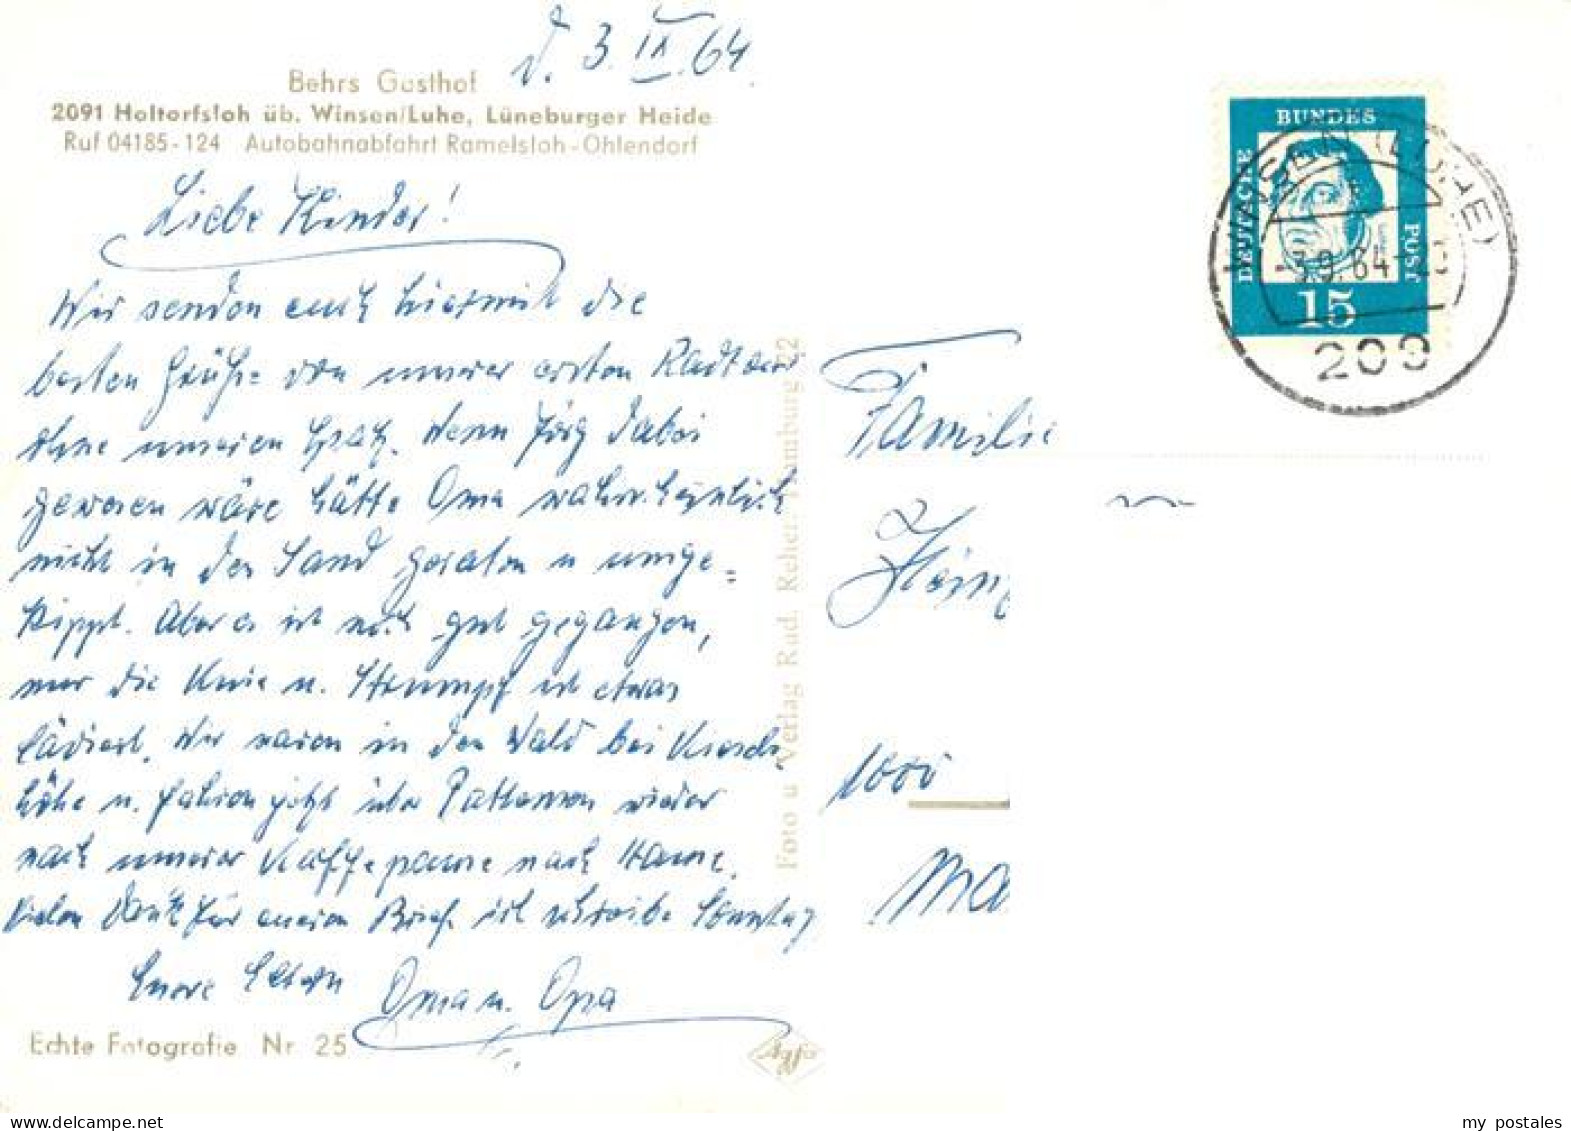 d. 3. IX. 64.
Behrs Gasthof
2091 Holtorfsloh üb. Winsen/Luhe, Lüneburger Heide
Ruf 04185-124 Autobahnabfahrt Ramelsloh-Ohlendorf
Liebe Kinder!
Wir senden euch hiermit die
besten Grüße von unserer ersten Radtour
ohne unseren Spatz. Wenn Jörg dabei
gewesen wäre hätte Oma wahrscheinlich
nicht in den Sand geraten u umge=
kippt. Aber es ist noch gut gegangen,
nur die Knie u. Strumpf ist etwas
lädiert. Wir waren in den Wald bei
höhe u. fahren jetzt über Pattensen wieder
nach unserer Kaffepause nach Hause.
Vielen Dank für eueren Brief. ich schreibe Sonntag
Euere Eltern Oma u. Opa
Echte Fotografie Nr. 25
Agfa
Foto u Verlag Rud. Reher, Hamburg 22
BUNDES
DEUTSCHE
POST
15
WINSEN (LUHE)
-3.9.64
209
Familie
Hein
1000
Ma
my postales